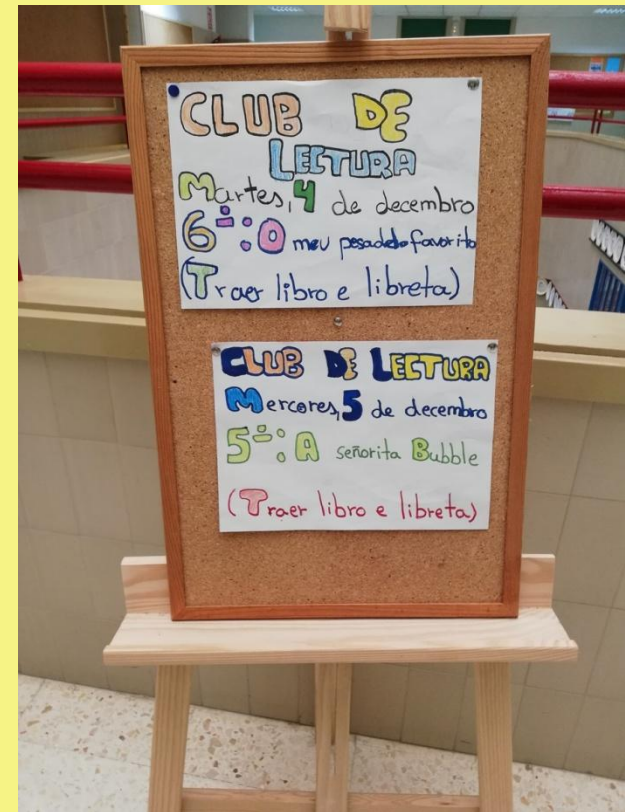 CLUB DE
LECTURA
Martes, 4 de decembro
6º: O meu pesadelo favorito
(Traer libro e libreta)
CLUB DE LECTURA
Mercores, 5 de decembro
5º: A señorita Bubble
(Traer libro e libreta)